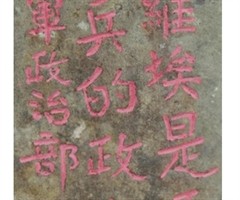 維埃是
兵的政
軍政治部